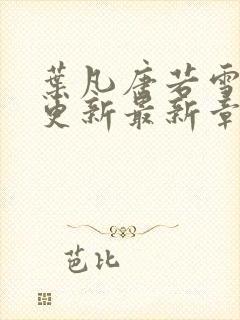 葉凡唐若雪
更新最新章
芭比